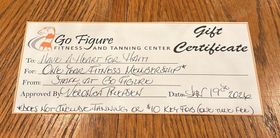 Go Figure
FITNESS AND TANNING CENTER
Gift
Certificate
To: HAVE A HEART FOR HAITI
For: ONE YEAR FITNESS MEMBERSHIP*
From: STAFF AT GO FIGURE
Approved By VERONICA Date JAN 19TH 2026
*DOES NOT INCLUDE TANNING OR $10 KEY FOB (ONE TIME FEE)